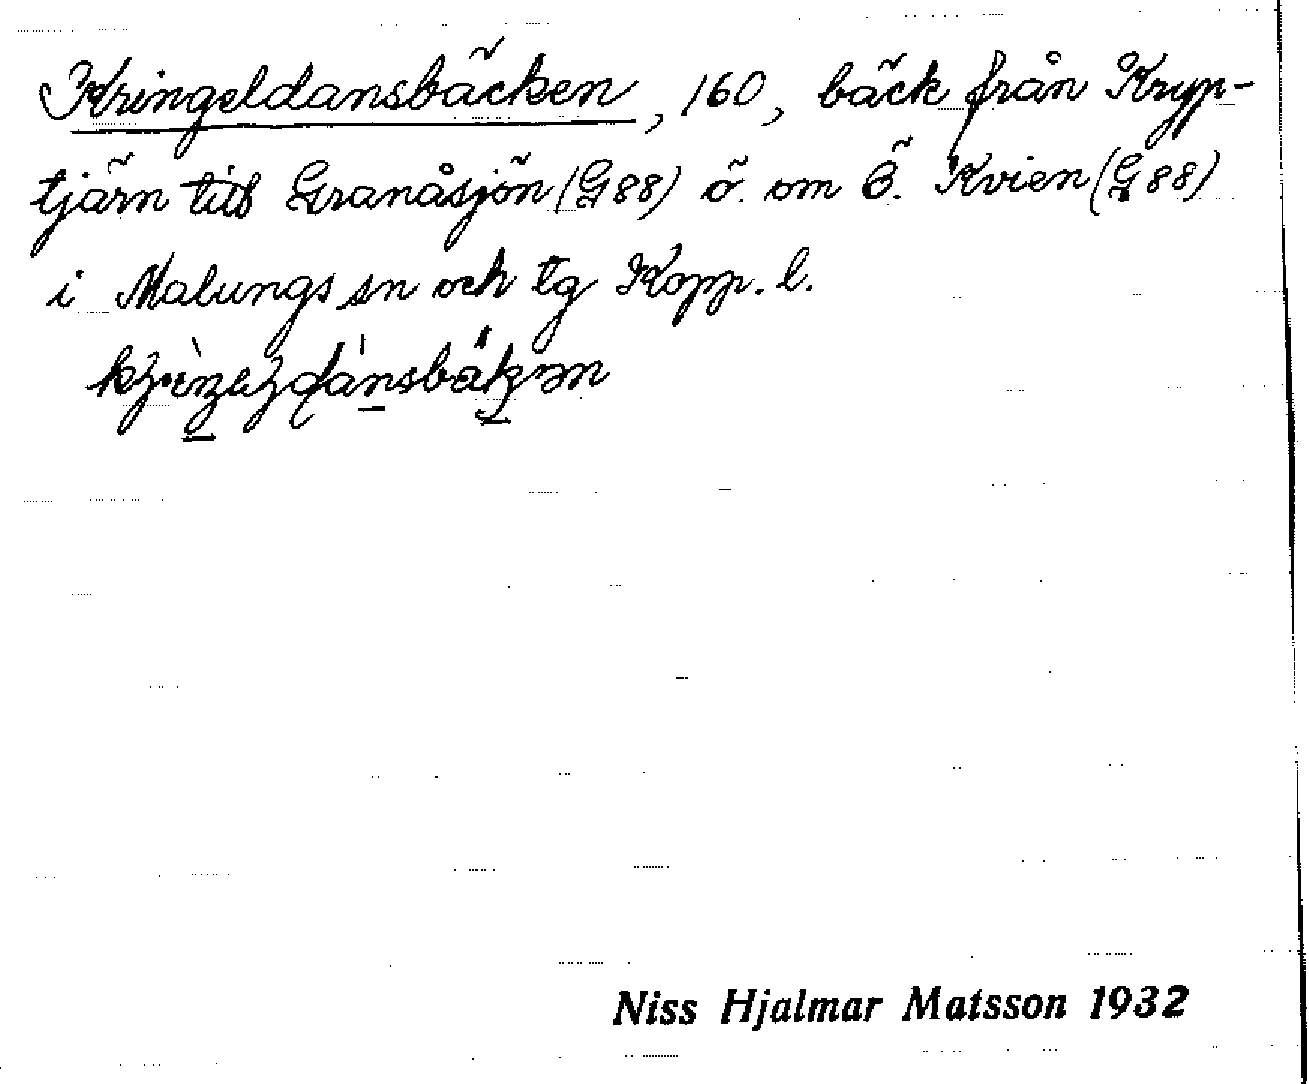 Kringeldansbäcken, 160, bäck från Kryp-
tjärn till Granåsjön (G88) ö. om Ö. Kvien (G88)
i Malungs sn och tg Kopp. l.
Niss Hjalmar Matsson 1932